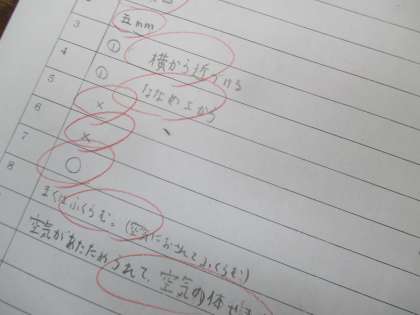 3
五mm
4
① 横から近づける
5
① ななめ上から
6
×
7
×
8
○
まくはふくらむ。(空気におされてふくらむ)
空気があたためられて、空気の体せき